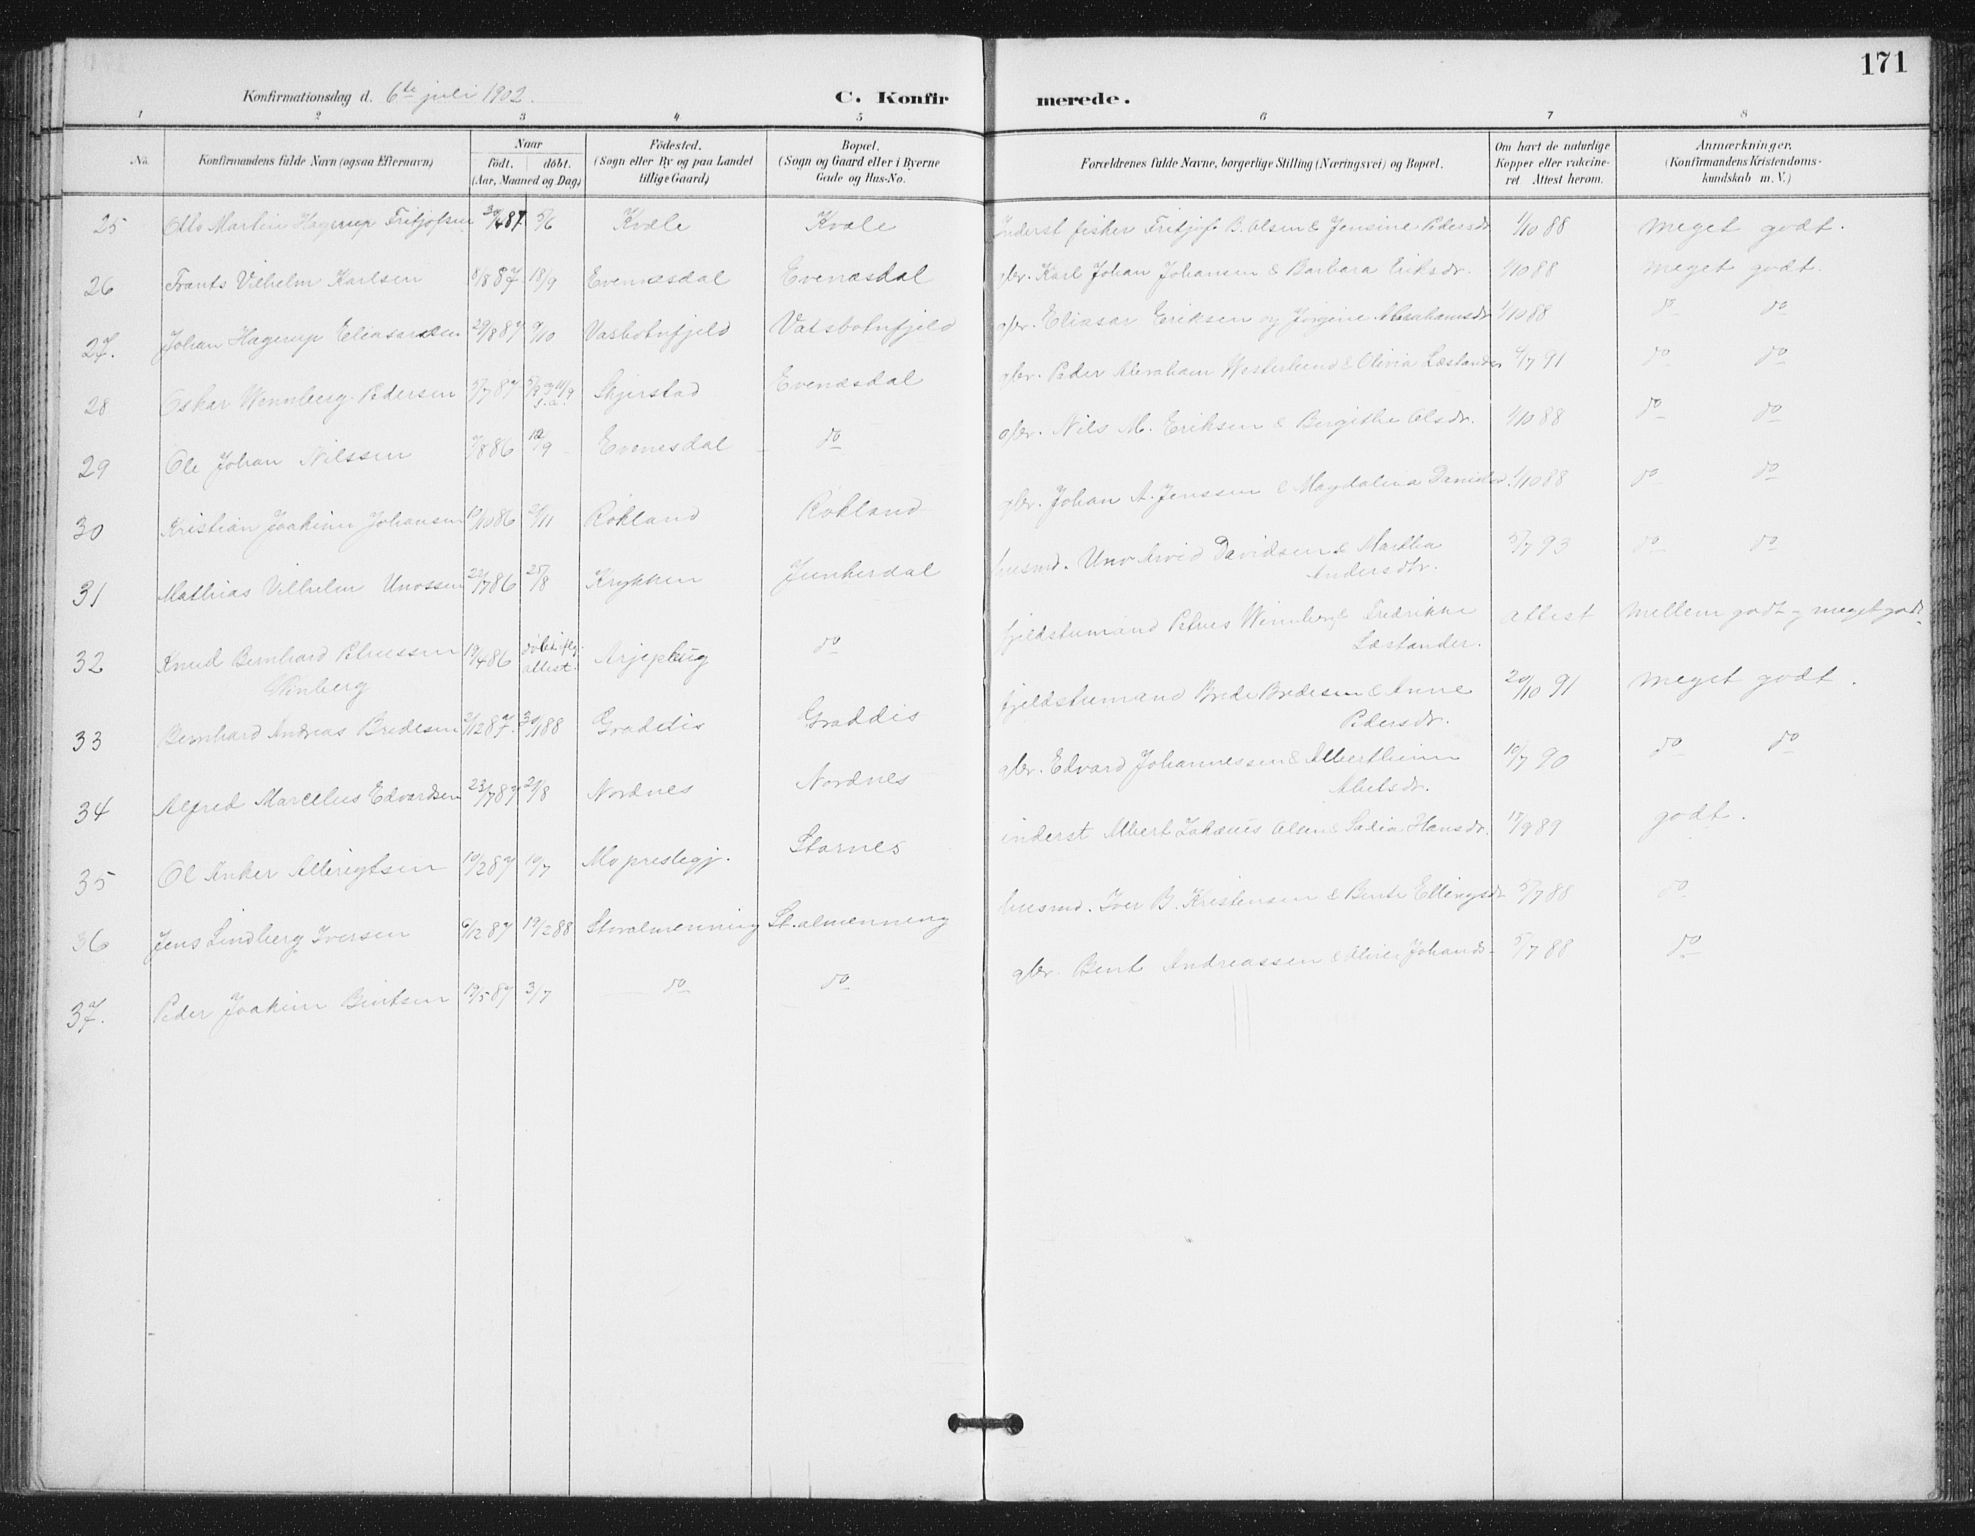 171
Konfirmationsdag d. 6te juli 1902.
C. Konfirmerede.
1 2 3 4 5 6 7 8
No. Konfirmandens fulde Navn (ogsaa Efternavn) Naar født. døbt. (Aar, Maaned og Dag) Fødested. (Sogn eller By og paa Landet tillige Gaard) Bopæl. (Sogn og Gaard eller i Byerne Gade og Hus-No. Forældrenes fulde Navne, borgerlige Stilling (Næringsvei) og Bopæl. Om havt de naturlige Kopper eller vakcineret. Attest herom. Anmærkninger. (Konfirmandens Kristendomskundskab m. V.)
25 Otto Martin Hagerup Fritjofsen 87 5/6 Kvæle Kvæle Inderst fisker Fritjof B. Olsen & Jensine Pedersdr 1/10 88 meget godt.
26 Frants Vilhelm Karlsen 6/8 87 18/9 Evenæsdal Evenæsdal gbr. Karl Johan Johansen & Barbara Eriksdr. 1/10 88 meget godt.
27. Johan Hagerup Eliasarsen 29/8 87 9/10 Vasbotnfjeld Vatsbotnfjeld gbr. Eliasar Eriksen og Jørgine Abrahamsdr 1/10 88 do do
28 Oskar Wennberg Pedersen 5/7 87 Skjerstad Evenæsdal gbr. Peder Abraham Westerlund & Olivia Læstander 6/7 91 do do
29 Ole Johan Nilssen 7/8 86 12/9 Evenesdal do gbr. Nils M. Eriksen & Bergithe Olsdr. 1/10 88 do do
30 Kristian Joakim Johansen 19/10 86 21/11 Røkland Røkland gbr. Johan A. Jenssen & Magdalina Danielsd. 1/10 88 do do
31 Mathias Vilhelm Unossen 22/7 86 25/8 Krykken Junkerdal husmd. Uno Arvid Davidsen & Martha Andersdtr. 5/7 93 do do
32 Knud Bernhard Petrussen Winberg 19/4 86 døbt iflg. attest. Arjeplug do fjeldstumand Petrus Winnberg & Fredrikke Læstander. attest mellem godt og meget godt.
33 Bernhard Andreas Bredesen 2/12 87. 30/1 88 Graddis Graddis fjeldstumand Brede Bredesen & Anne Pedersdr. 20/10 91 meget godt.
34 Alfred Marcelius Edvardsen 23/7 87 21/8 Nordnes Nordnes gbr. Edvard Johannessen & Alberthine Abelsdr. 10/7 90 do do
35 Ol Anker Albrigtsen 19/2 87 10/7 Mo prestegj. Stornes inderst Albert Zakæus Olsen & Sedia Hansdr. 17/9 89 godt.
36 Jens Lindberg Iversen 6/12 87 19/2 88 Storalmenning St.almenning husmd. Iver B. Kristensen & Bente Ellingsdr 5/7 88 do
37. Peder Joakim Bentsen 19/5 87 3/7 do do gbr. Bent Andreassen & Johansdr 5/7 88 do